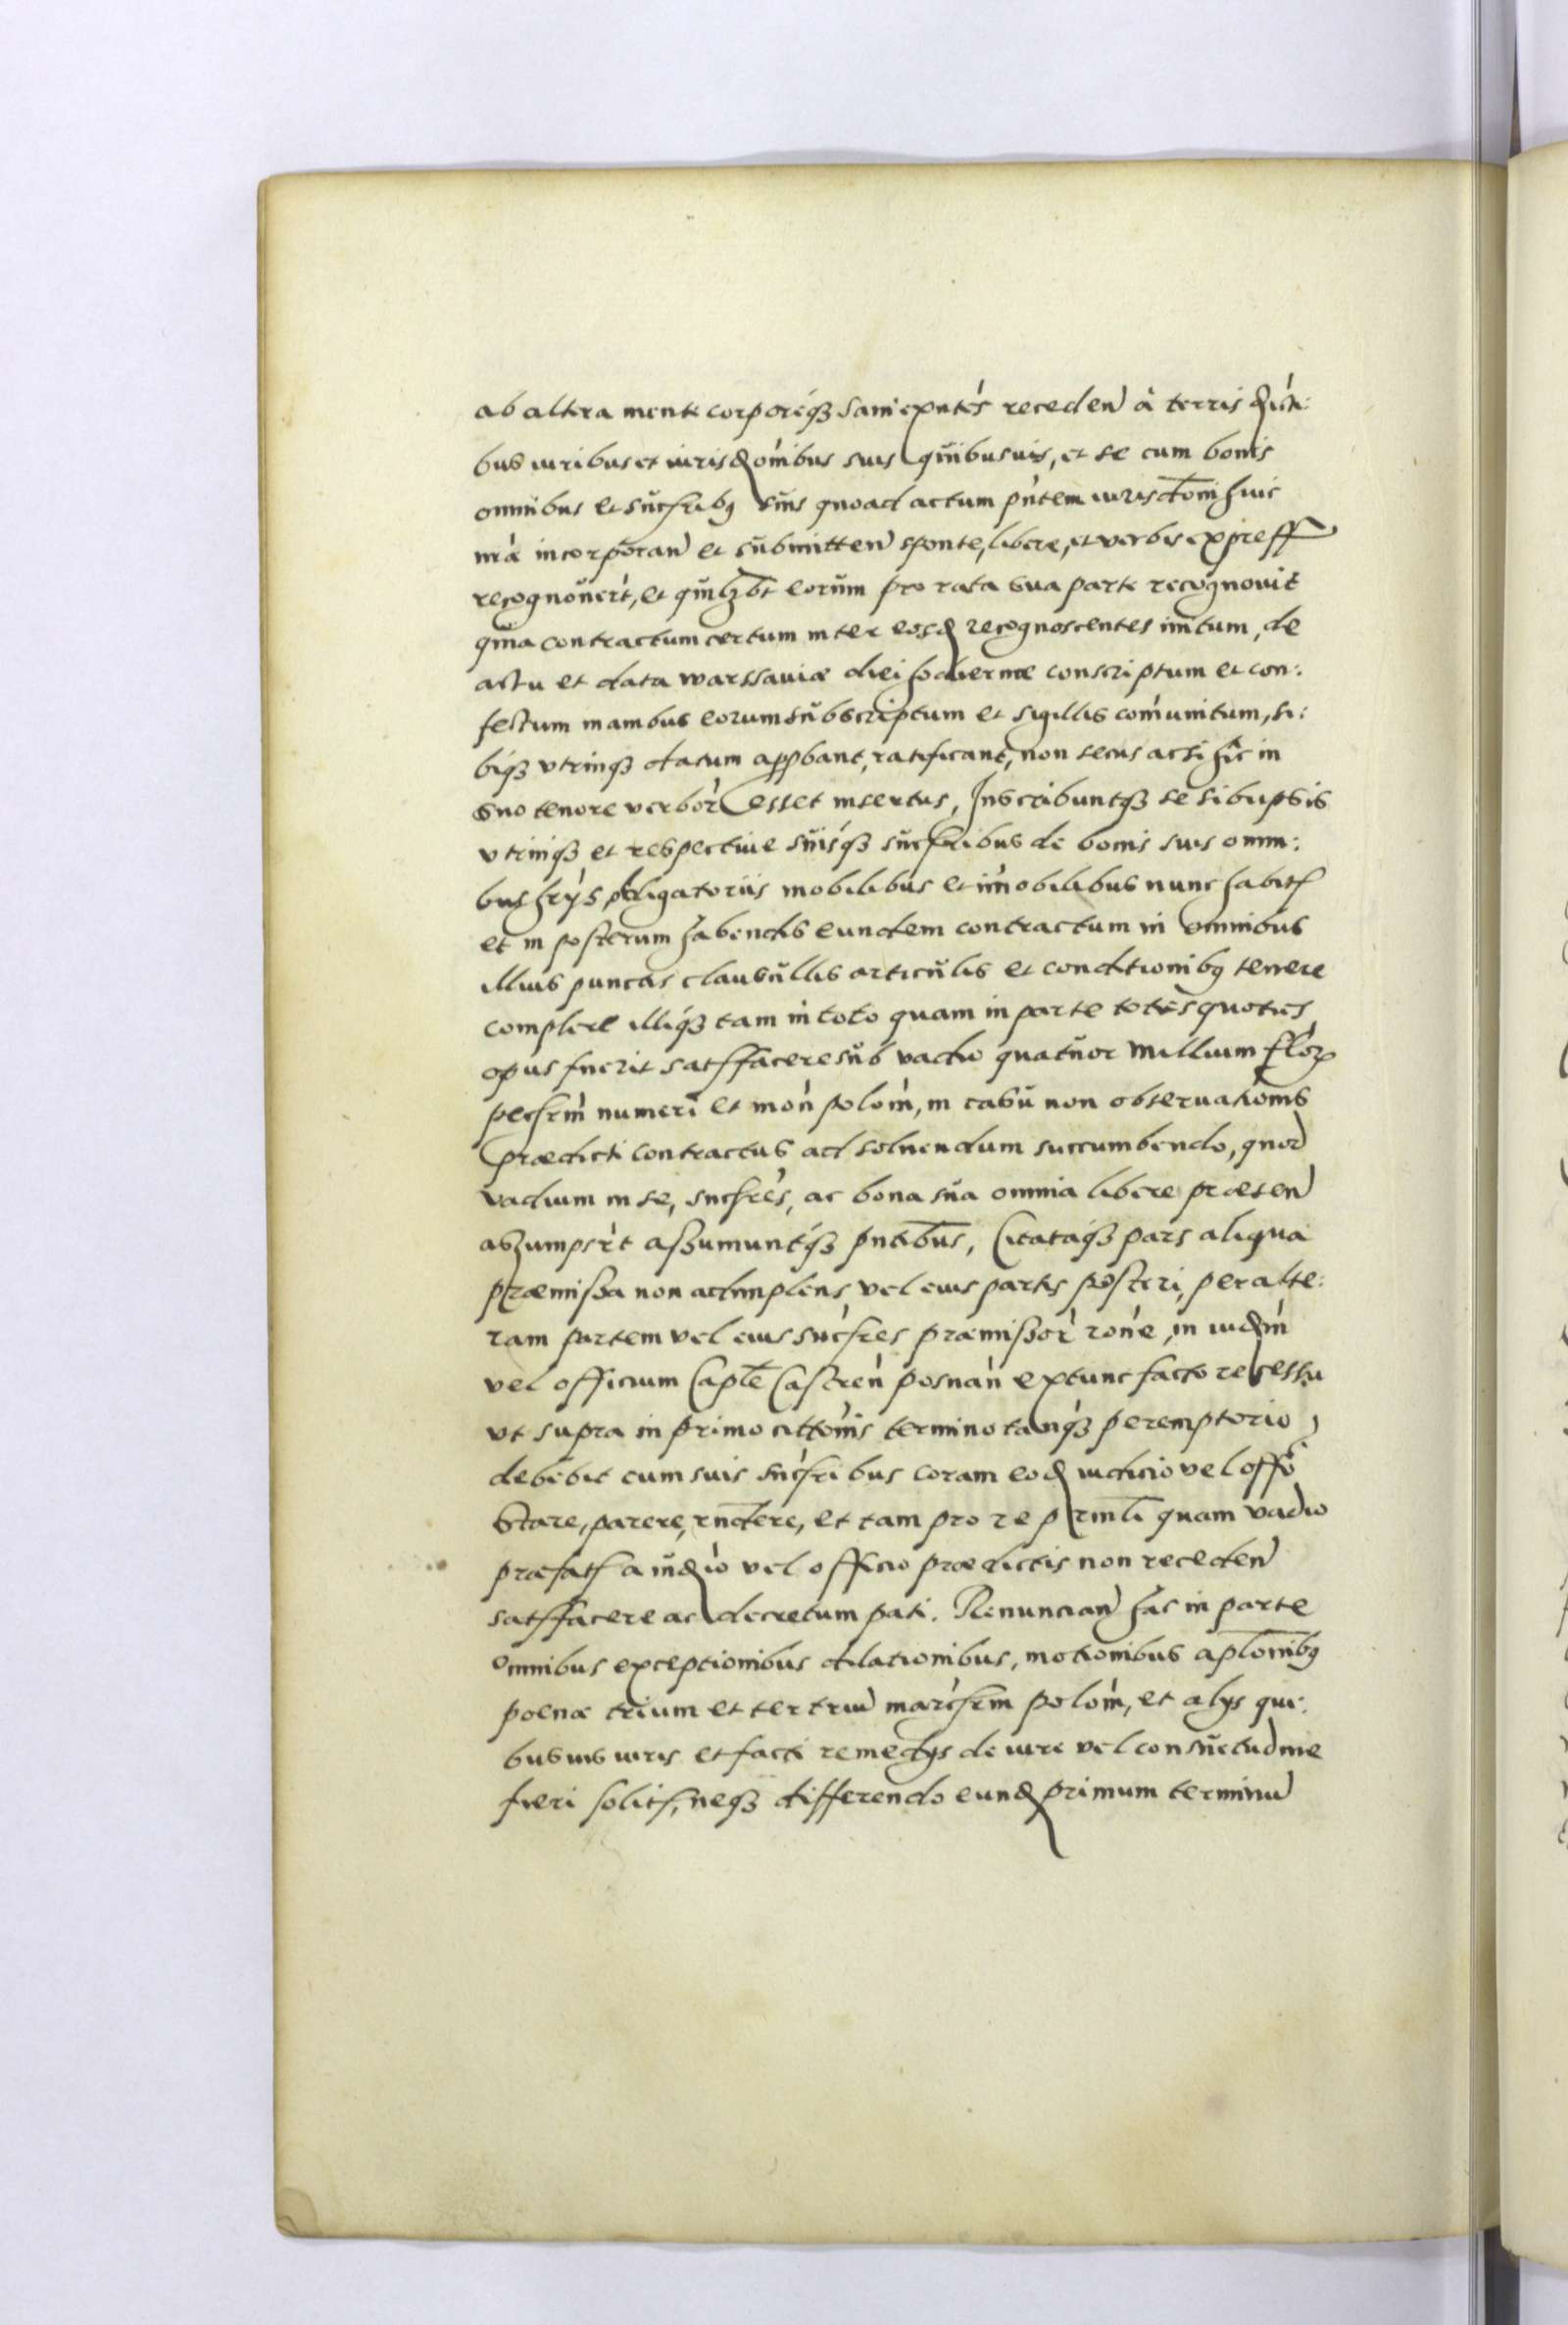 ab altera mente corporeq₃ sani exñtes receden̄ à terris
bus iuribus et iurisdõnibus suis quibusuis, et se cum bonis
omnibus et sũcsribꝫ suis quoad actum pñtem iurisdc̄toni huic
nr̃æ incorporan̄ et submitten̄ sponte, libere, et verbis express
recognouer̃t, et quilꝫbt eorũm pro rata sua parte recognouit
qm̃a contractum certum inter eosd recognoscentes initum, de
actu et data warssauiæ diei hodiernæ conscriptum et con:
fectum manibus eorum sũbscriptum et sigillis com̃unitum, si:
biq₃ vtrinq₃ datum app̃bant, ratificant, non secus acsi hic in
suo tenore verbor̃ esset insertus, Inscribuntq₃ se sibiipsis
vtrinq₃ et respectiue suisq₃ sũcsribus de bonis suis omni:
bus hrijs obligatoriis mobilibus et im̃obilibus nunc habit
et in posterum habendis eundem contractum in omnibus
illius punctis clausũllis articũlis et conditionibꝫ tenere
complere illiq₃ tam in toto quam in parte toties quoties
opus fuerit satffacere sũb vadio quatũor millium flor
pecsr̃m numeri et mon̄ polon̄, in casũ non obseruationis
prædicti contractus ad soluendum succumbendo, quod
vadium in se, sũcsres, ac bona sũa omnia libere præsen̄
aszumpser̃t aszumuntq₃ pñtibus, Citataq₃ pars aliqua
præmissa non adimplens, vel eius partis posteri, per alte:
ram partem vel eius sũcsres præmissor̃ rõne, in iudm̃
vel officium Capl̃e Castren̄ posnan̄ extunc facto recessu
vt supra in primo cittõnis termino tanq₃ peremptorio
debebit cum suis sũcsribus coram eod iudicio vel offõ
Stare, parere, rñdere, et tam pro re prinl̃i quam vadio
præfat a iud̃io vel officio prædictis non receden̄
satffacere ac decretum pati. Renuncian̄ hac in parte
omnibus exceptionibus dilationibus, motionibus apl̃onibꝫ
poenæ trium et ter triũ marcsr̃m polon̄, et alijs qui:
busuis iuris et facti remedijs de iure vel consũetudine
fieri solit, neq₃ differendo eund primum terminũ